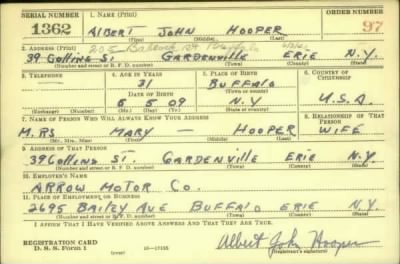 SERIAL NUMBER 1. NAME (Print) ORDER NUMBER
1362 ALBERT JOHN HOOPER 97
(First) (Middle) (Last)
2. ADDRESS (Print) 205 Babcock St Buffalo
39 Collins St. GARDENVILLE ERIE N.Y.
(Number and street or R. F. D. number) (Town) (County) (State)
3. TELEPHONE 4. AGE IN YEARS 5. PLACE OF BIRTH 6. COUNTRY OF CITIZENSHIP
31 BUFFALO
DATE OF BIRTH (Town or county)
6 5 09 N.Y U.S.A.
(Exchange) (Number) (Mo.) (Day) (Yr.) (State or country)
7. NAME OF PERSON WHO WILL ALWAYS KNOW YOUR ADDRESS 8. RELATIONSHIP OF THAT PERSON
MRS MARY — HOOPER WIFE
(Mr., Mrs., Miss) (First) (Middle) (Last)
9. ADDRESS OF THAT PERSON
39 Collins ST. GARDENVILLE ERIE N.Y.
(Number and street or R. F. D. number) (Town) (County) (State)
10. EMPLOYER'S NAME
ARROW MOTOR CO.
11. PLACE OF EMPLOYMENT OR BUSINESS
2695 BAILEY AVE BUFFALO ERIE N.Y.
(Number and street or R. F. D. number) (Town) (County) (State)
I AFFIRM THAT I HAVE VERIFIED ABOVE ANSWERS AND THAT THEY ARE TRUE.
REGISTRATION CARD
D. S. S. Form 1 (over) 16—17105 Albert John Hooper
(Registrant's signature)